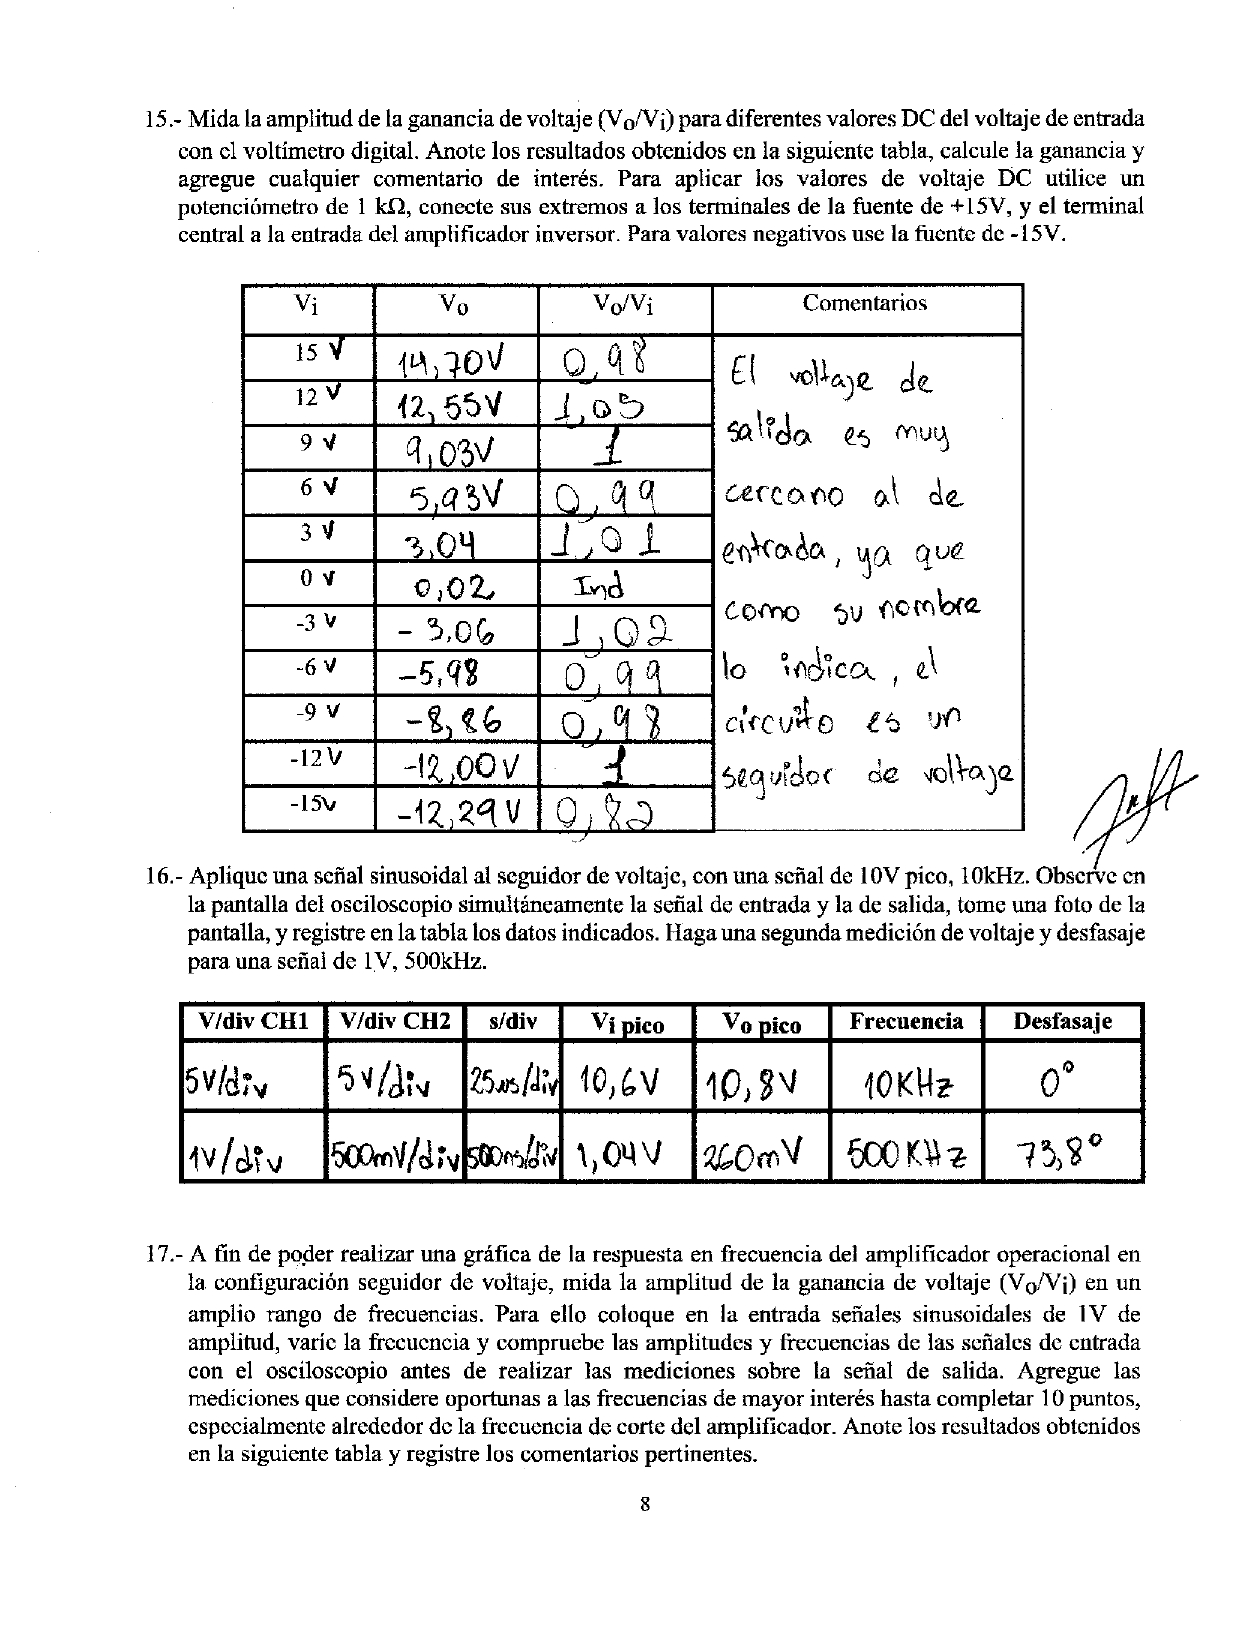 15.- Mida la amplitud de la ganancia de voltaje (Vo/Vi) para diferentes valores DC del voltaje de entrada
con el voltímetro digital. Anote los resultados obtenidos en la siguiente tabla, calcule la ganancia y
agregue cualquier comentario de interés. Para aplicar los valores de voltaje DC utilice un
potenciómetro de 1 kΩ, conecte sus extremos a los terminales de la fuente de +15V, y el terminal
central a la entrada del amplificador inversor. Para valores negativos use la fuente de -15V.
Vi Vo Vo/Vi Comentarios
15 V 14,70V 0,98
12 V 12,55V 1,05
9 V 9,03V 1
6 V 5,93V 0,99
3 V 3,04 1,01
0 V 0,02 Ind
-3 V -3,06 1,02
-6 V -5,98 0,99
-9 V -8,86 0,98
-12 V -12,00V 1
-15V -12,29V 0,82
El voltaje de
salida es muy
cercano al de
entrada, ya que
como su nombre
lo indica, el
circuito es un
seguidor de voltaje
16.- Aplique una señal sinusoidal al seguidor de voltaje, con una señal de 10V pico, 10kHz. Observe en
la pantalla del osciloscopio simultáneamente la señal de entrada y la de salida, tome una foto de la
pantalla, y registre en la tabla los datos indicados. Haga una segunda medición de voltaje y desfasaje
para una señal de 1V, 500kHz.
V/div CH1 V/div CH2 s/div Vi pico Vo pico Frecuencia Desfasaje
5V/div 5V/div 25us/div 10,6V 10,8V 10KHz 0°
1V/div 500mV/div 500ns/div 1,04V 260mV 500KHz 73,8°
17.- A fin de poder realizar una gráfica de la respuesta en frecuencia del amplificador operacional en
la configuración seguidor de voltaje, mida la amplitud de la ganancia de voltaje (Vo/Vi) en un
amplio rango de frecuencias. Para ello coloque en la entrada señales sinusoidales de 1V de
amplitud, varíe la frecuencia y compruebe las amplitudes y frecuencias de las señales de entrada
con el osciloscopio antes de realizar las mediciones sobre la señal de salida. Agregue las
mediciones que considere oportunas a las frecuencias de mayor interés hasta completar 10 puntos,
especialmente alrededor de la frecuencia de corte del amplificador. Anote los resultados obtenidos
en la siguiente tabla y registre los comentarios pertinentes.
8